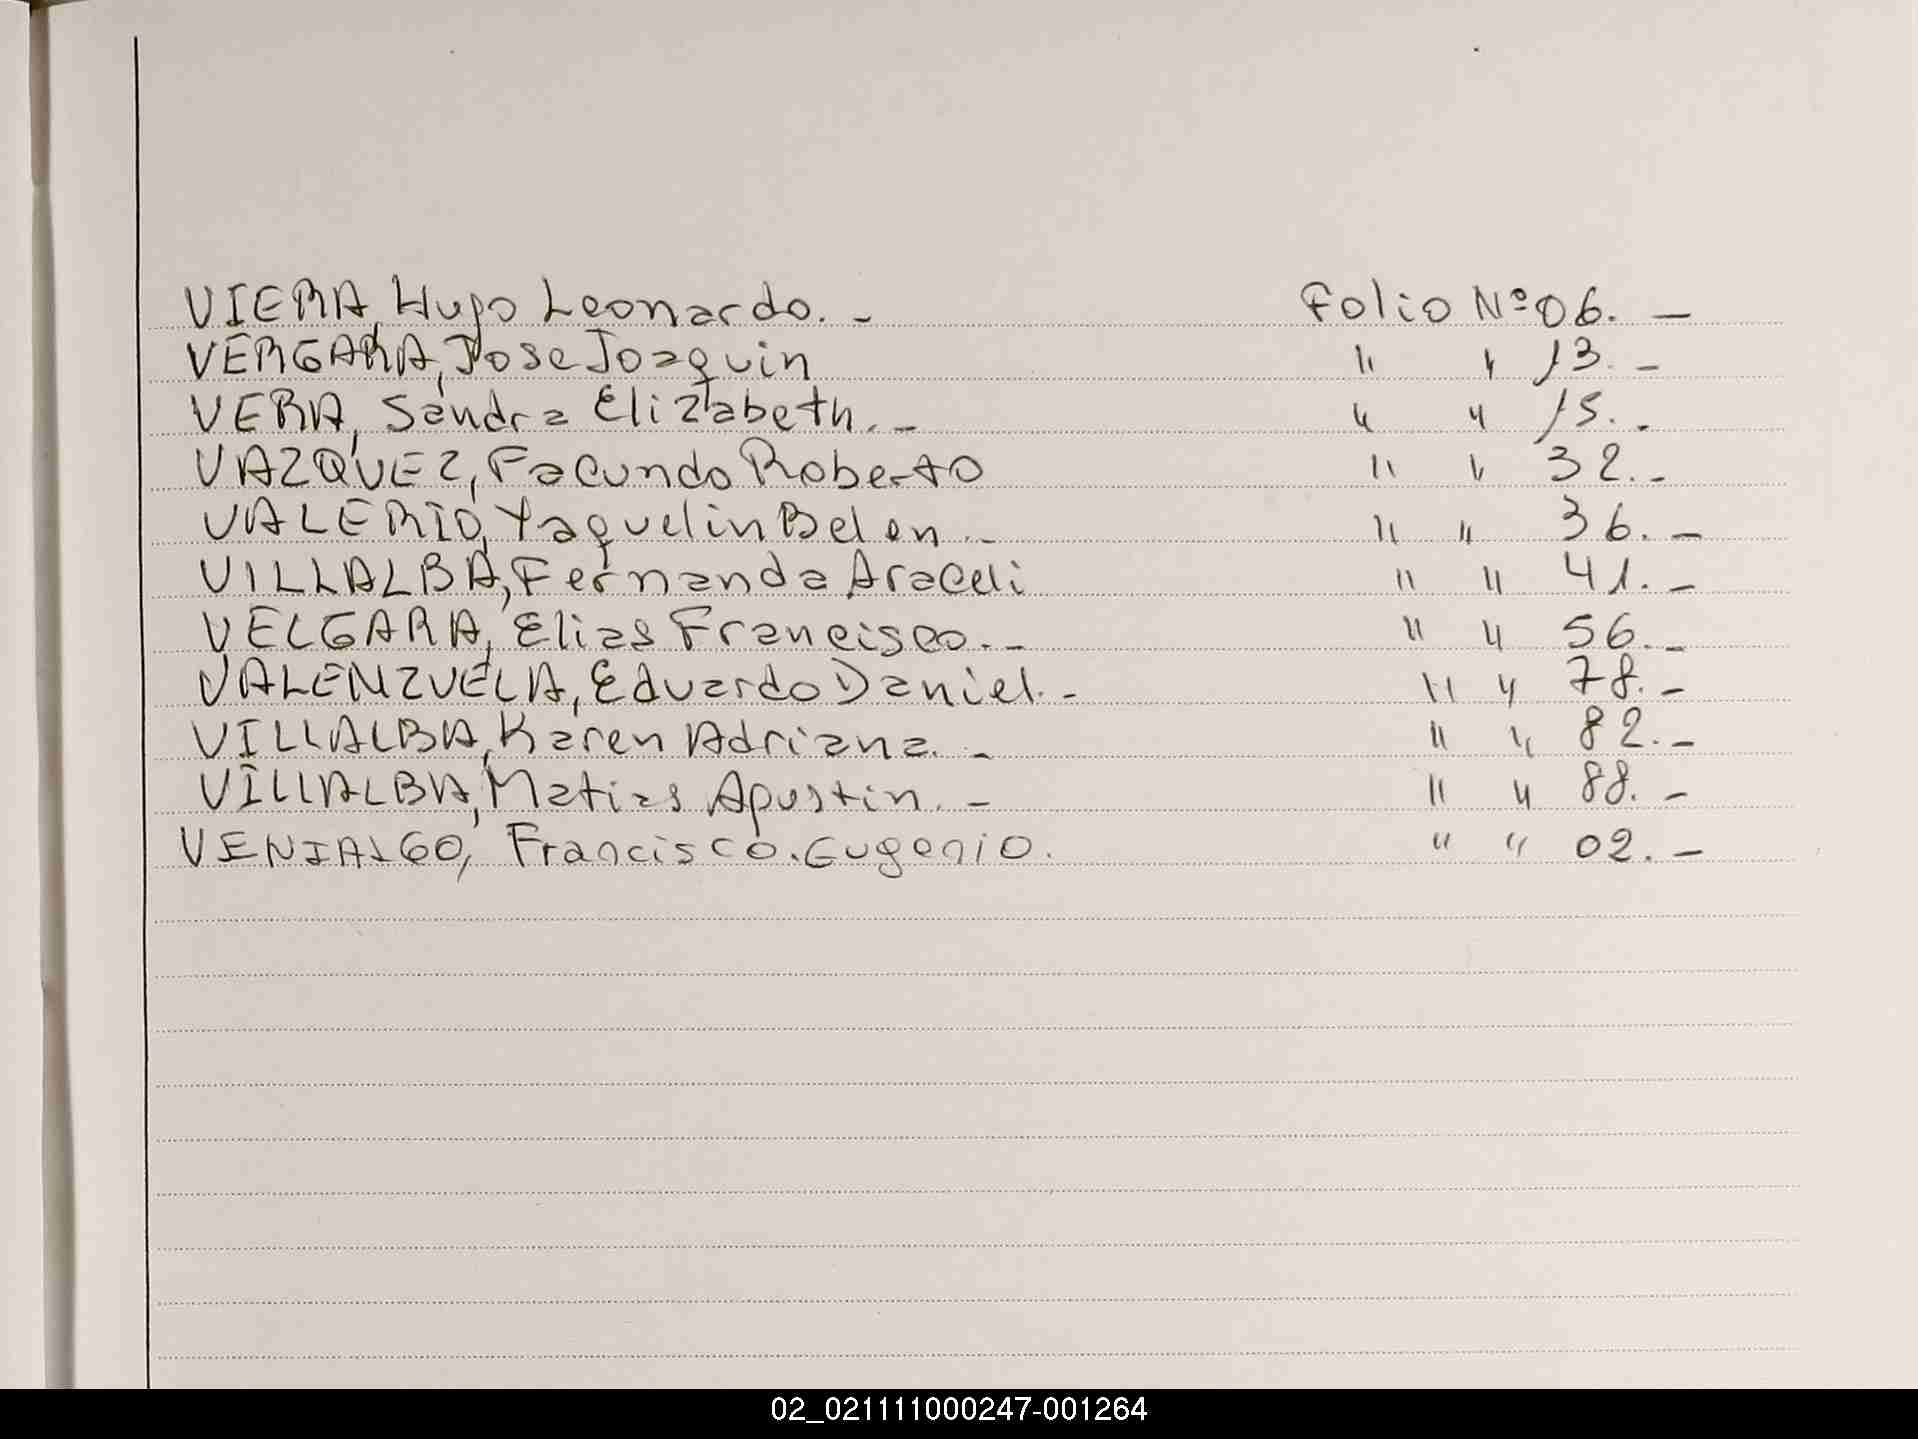 VIERA, Hugo Leonardo. - Folio Nº 06. -
VERGARA, Jose Joaquin " " 13. -
VERA, Sandra Elizabeth. - " " 15. -
VAZQUEZ, Facundo Roberto " " 32. -
VALERIO, Yaquelin Belen. - " " 36. -
VILLALBA, Fernanda Araceli " " 41. -
VELGARA, Elias Francisco. - " " 56. -
VALENZUELA, Eduardo Daniel. - " " 78. -
VILLALBA, Karen Adriana. - " " 82. -
VILLALBA, Matias Agustin. - " " 88. -
VENIALGO, Francisco. Eugenio. " " 02. -
02_021111000247-001264